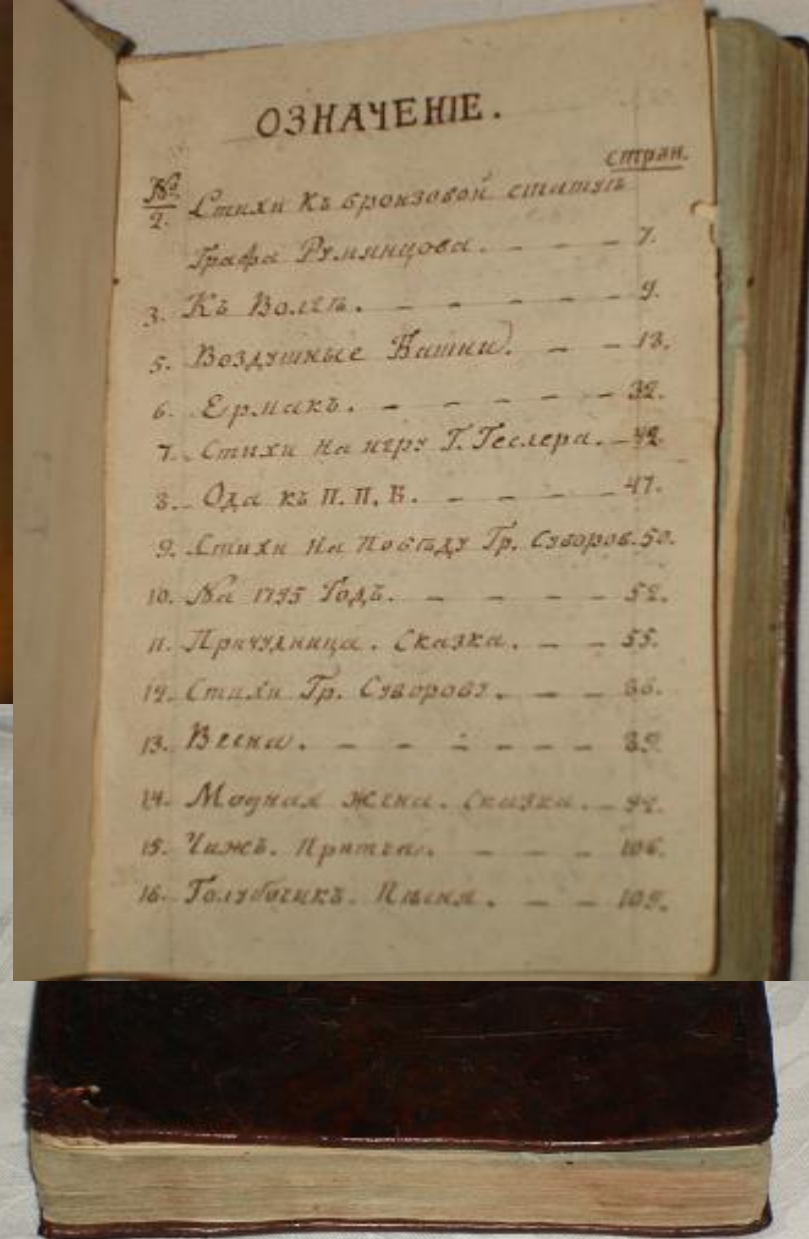 ОЗНАЧЕНІЕ.
стран.
№
2. Стихи Къ бронзовой статуѣ
Графа Румянцова. - - - 7.
3. Къ Волгѣ. - - - - - 9.
5. Воздушные Башни. - - 13.
6. Ермакъ. - - - - - 32.
7. Стихи на игру Г. Геслера. - 42.
8. Ода къ П. П. Б. - - - - 47.
9. Стихи на Побѣду Гр. Суворов. 50.
10. На 1795 Годъ. - - - - 52.
11. Причудница. Сказка. - - 55.
12. Стихи Гр. Суворову. - - - 86.
13. Весна. - - - - - - 89.
14. Модная жена. Сказка. - 92.
15. Чижъ. Притча. - - - 106.
16. Голубочикъ. Пѣсня. - - - 109.